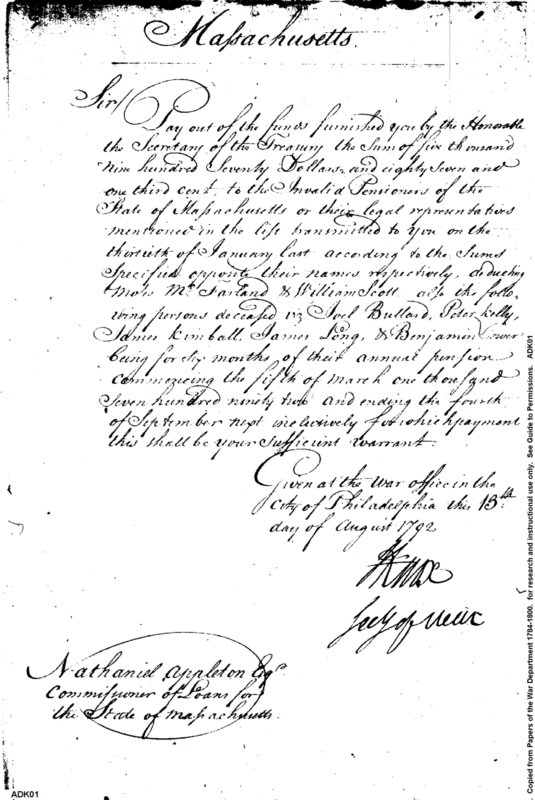 Massachusetts.
Sir/
Pay out of the funds furnished you by the Honorable
the Secretary of the Treasury the Sum of five thousand
nine hundred Seventy Dollars and eighty Seven and
one third cent. to the Invalid Pensioners of the
State of Massachusetts or their legal representatives
mentioned in the list transmitted to you on the
thirtieth of January last according to the Sums
Specified opposite their names respectively, deducting
Moses Mc.Farland & William Scott also the follo-
wing persons deceased viz Joel Bullard, Peter Kelly,
James Kimball, James Long, & Benjamin
being for six months of their annual pension
commencing the fifth of March one thousand
Seven hundred ninety two and ending the fourth
of September next inclusively for which payment
this shall be your Sufficient Warrant.
Given at the War office in the
City of Philadelphia this 13th.
day of August 1792
HKnox
Secy of War
Nathaniel Appleton Esqr.
Commissioner of Loans for
the State of Massachusetts.
ADK01
Copied from Papers of the War Department 1784-1800, for research and instructional use only. See Guide to Permissions. ADK01